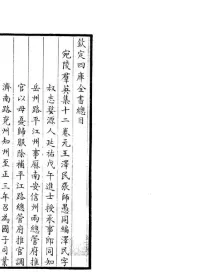 欽定四庫全書總目
宛陵羣英集十二卷元汪澤民張師愚同編澤民字
叔志婺源人延祐戊午進士授承事郎同知
岳州路平江州事厯南安信州兩總管府推
官以母憂歸服除補平江路總管府推官調
濟南路兗州知州至正三年召為國子司業